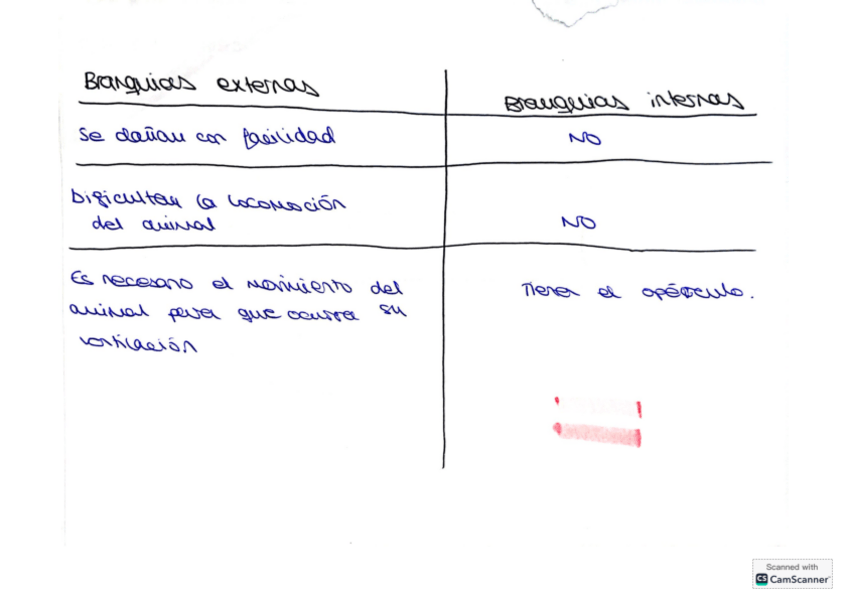 Branquias externas
Branquias internas
Se dañan con facilidad
NO
Dificultan la locomoción
del animal
NO
Es necesario el movimiento del
animal para que ocurra su
ventilación
Tienen el opérculo.
Scanned with
CS CamScanner